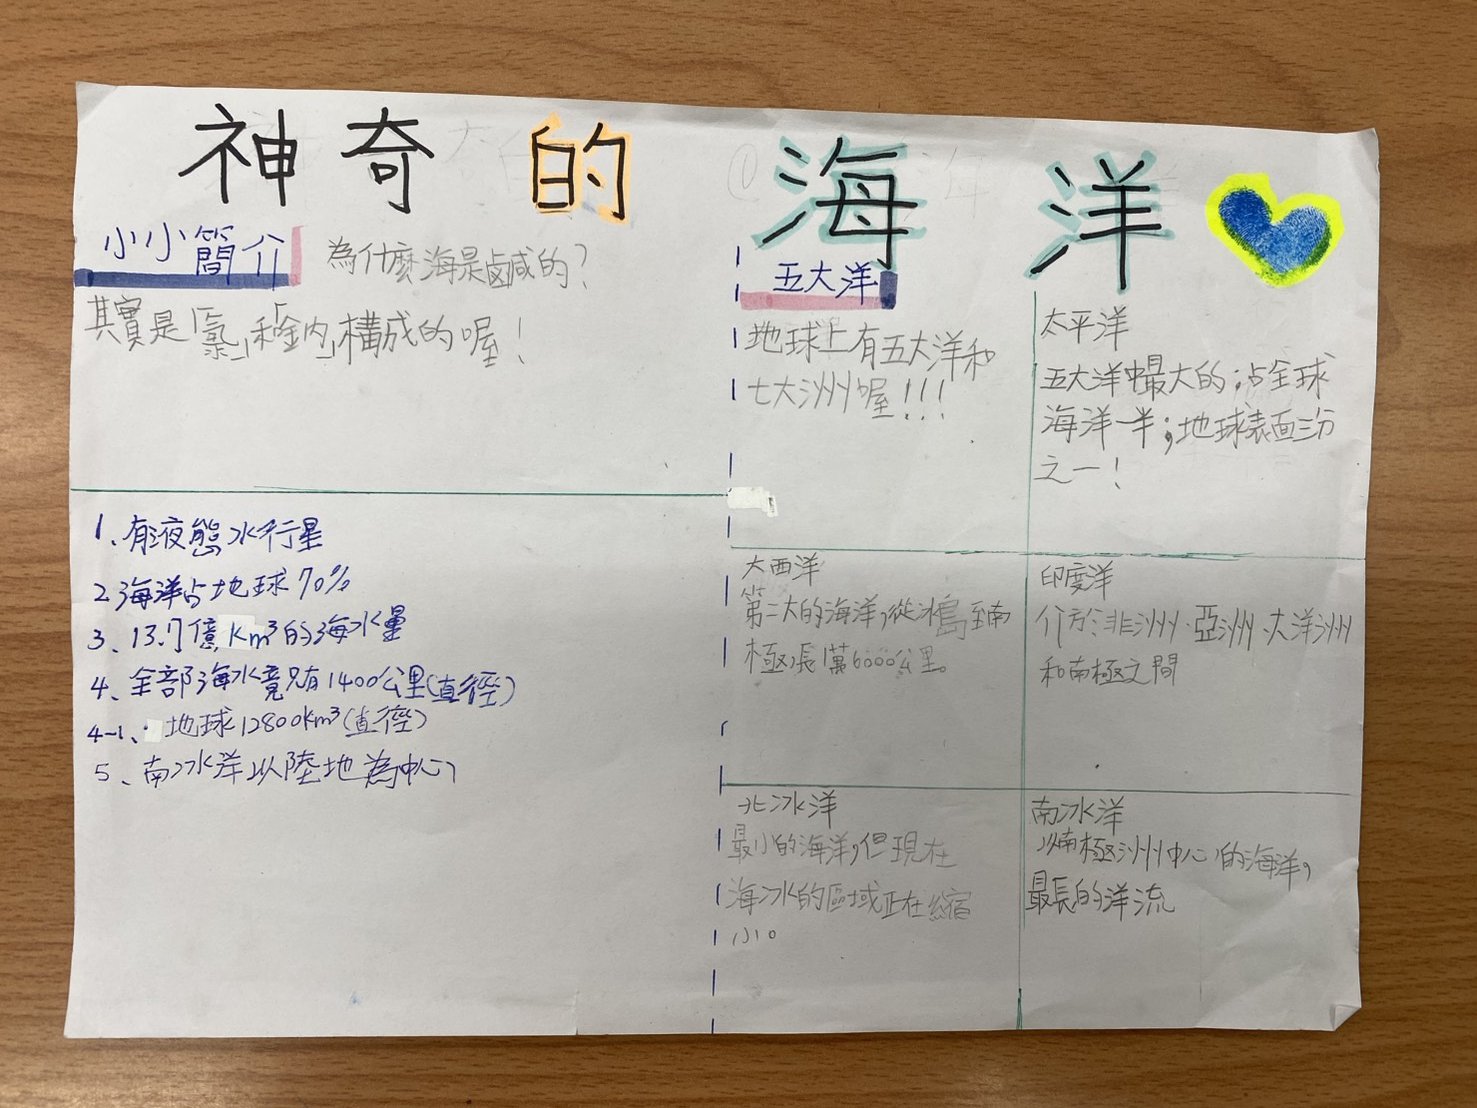 神奇的海洋
小小簡介
為什麼海是鹹的？
其實是「氯」和「鈉」構成的喔！
1、有液態水行星
2、海洋占地球70%
3、13.7億km³的海水量
4、全部海水竟只有1400公里(直徑)
4-1、地球12800km³(直徑)
5、南冰洋以陸地為中心
五大洋
地球上有五大洋和
七大洲喔！！！
太平洋
五大洋中最大的；占全球
海洋一半；地球表面三分
之一！
大西洋
第二大的海洋，從冰島至南
極，長1萬6000公里。
印度洋
介於：非洲、亞洲、大洋洲
和南極之間
北冰洋
最小的海洋，但現在
海冰的區域正在縮
小。
南冰洋
以南極洲中心的海洋，
最長的洋流